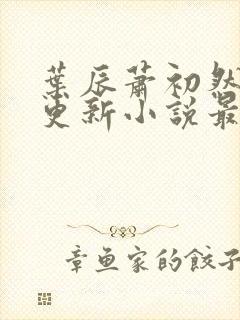 葉辰蕭初然
更新小説最
章鱼家的餃子